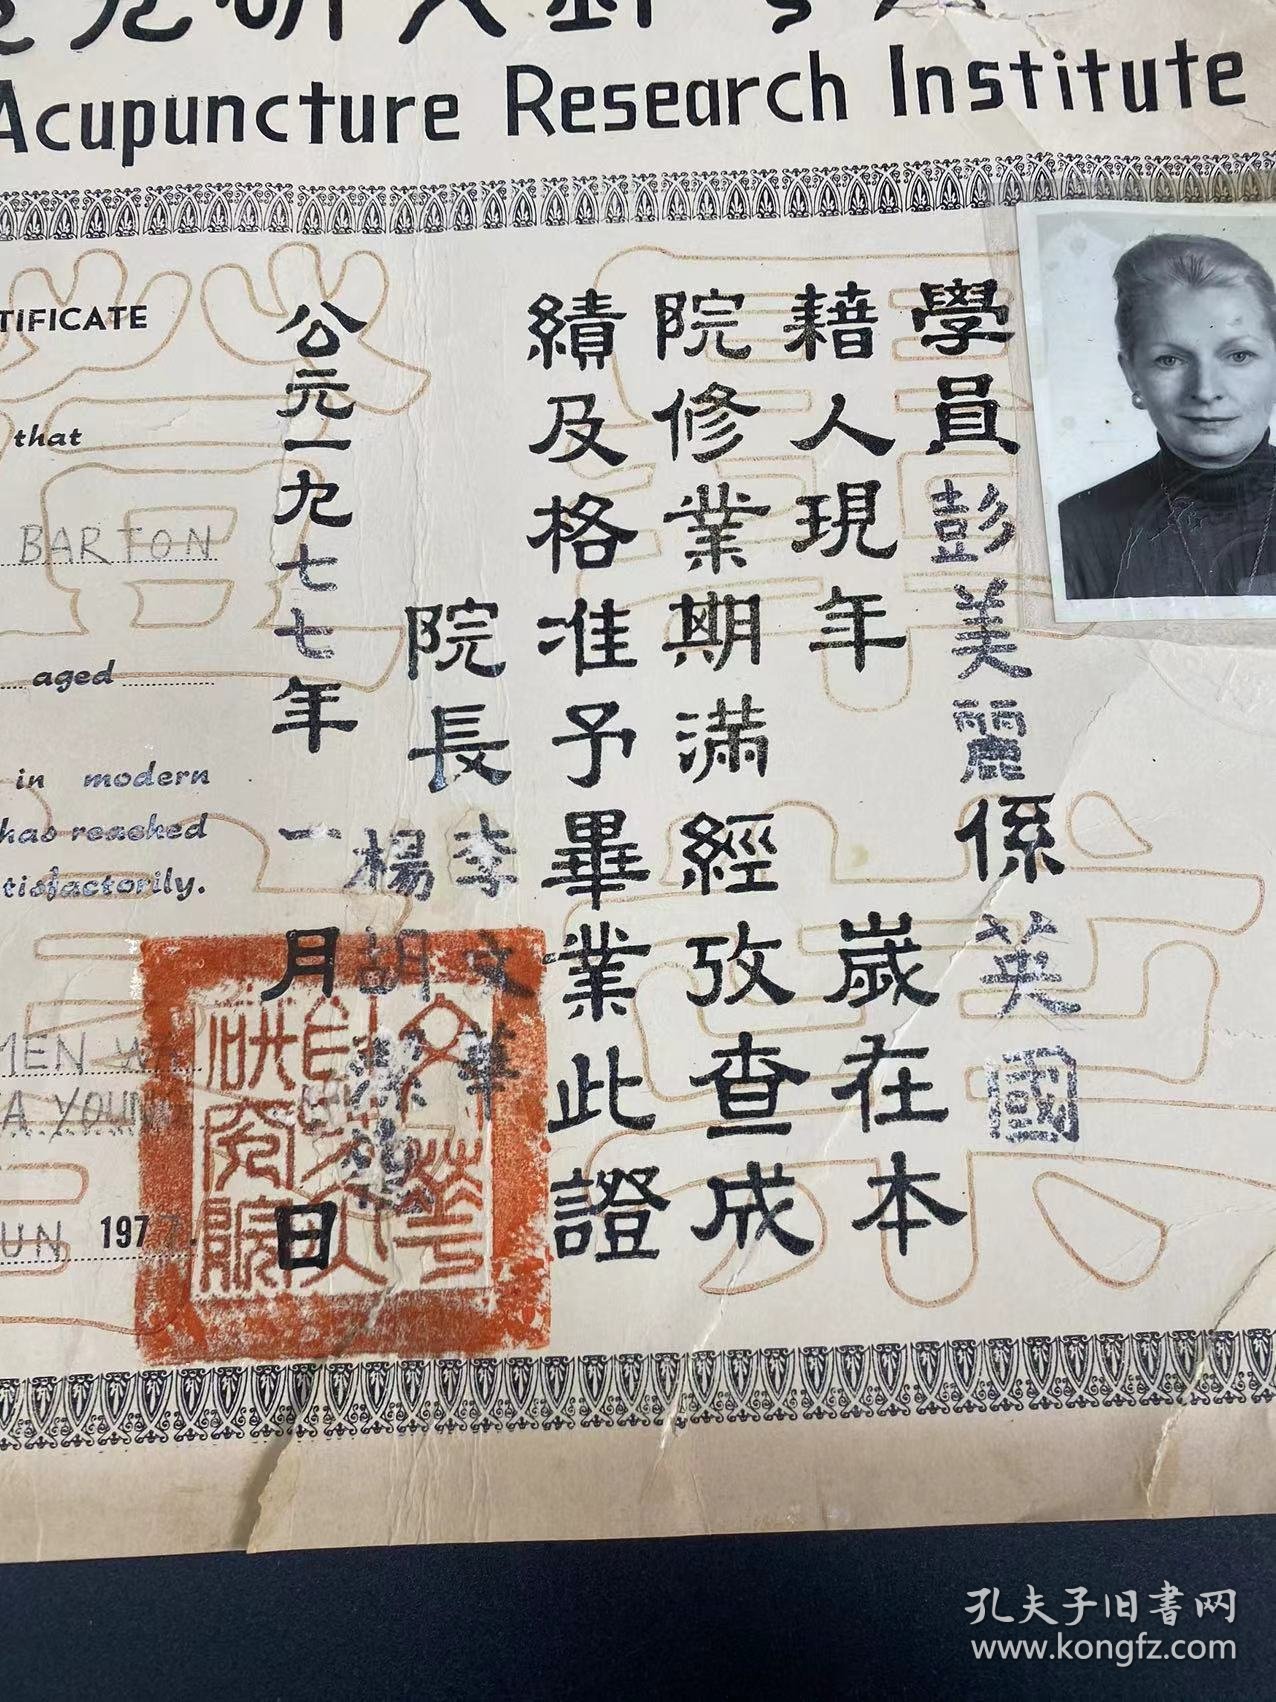 Acupuncture Research Institute
學員彭美麗係英國
籍人現年 歲在本
院修業期滿經攷查成
績及格准予畢業此證
院長 李文華
楊胡潔
公元一九七七年 一 月 日
TIFICATE
that
BARTON
aged
in modern
has reached
tisfactorily.
MEN WA
A YOUN
UN 197
孔夫子旧書网
www.kongfz.com